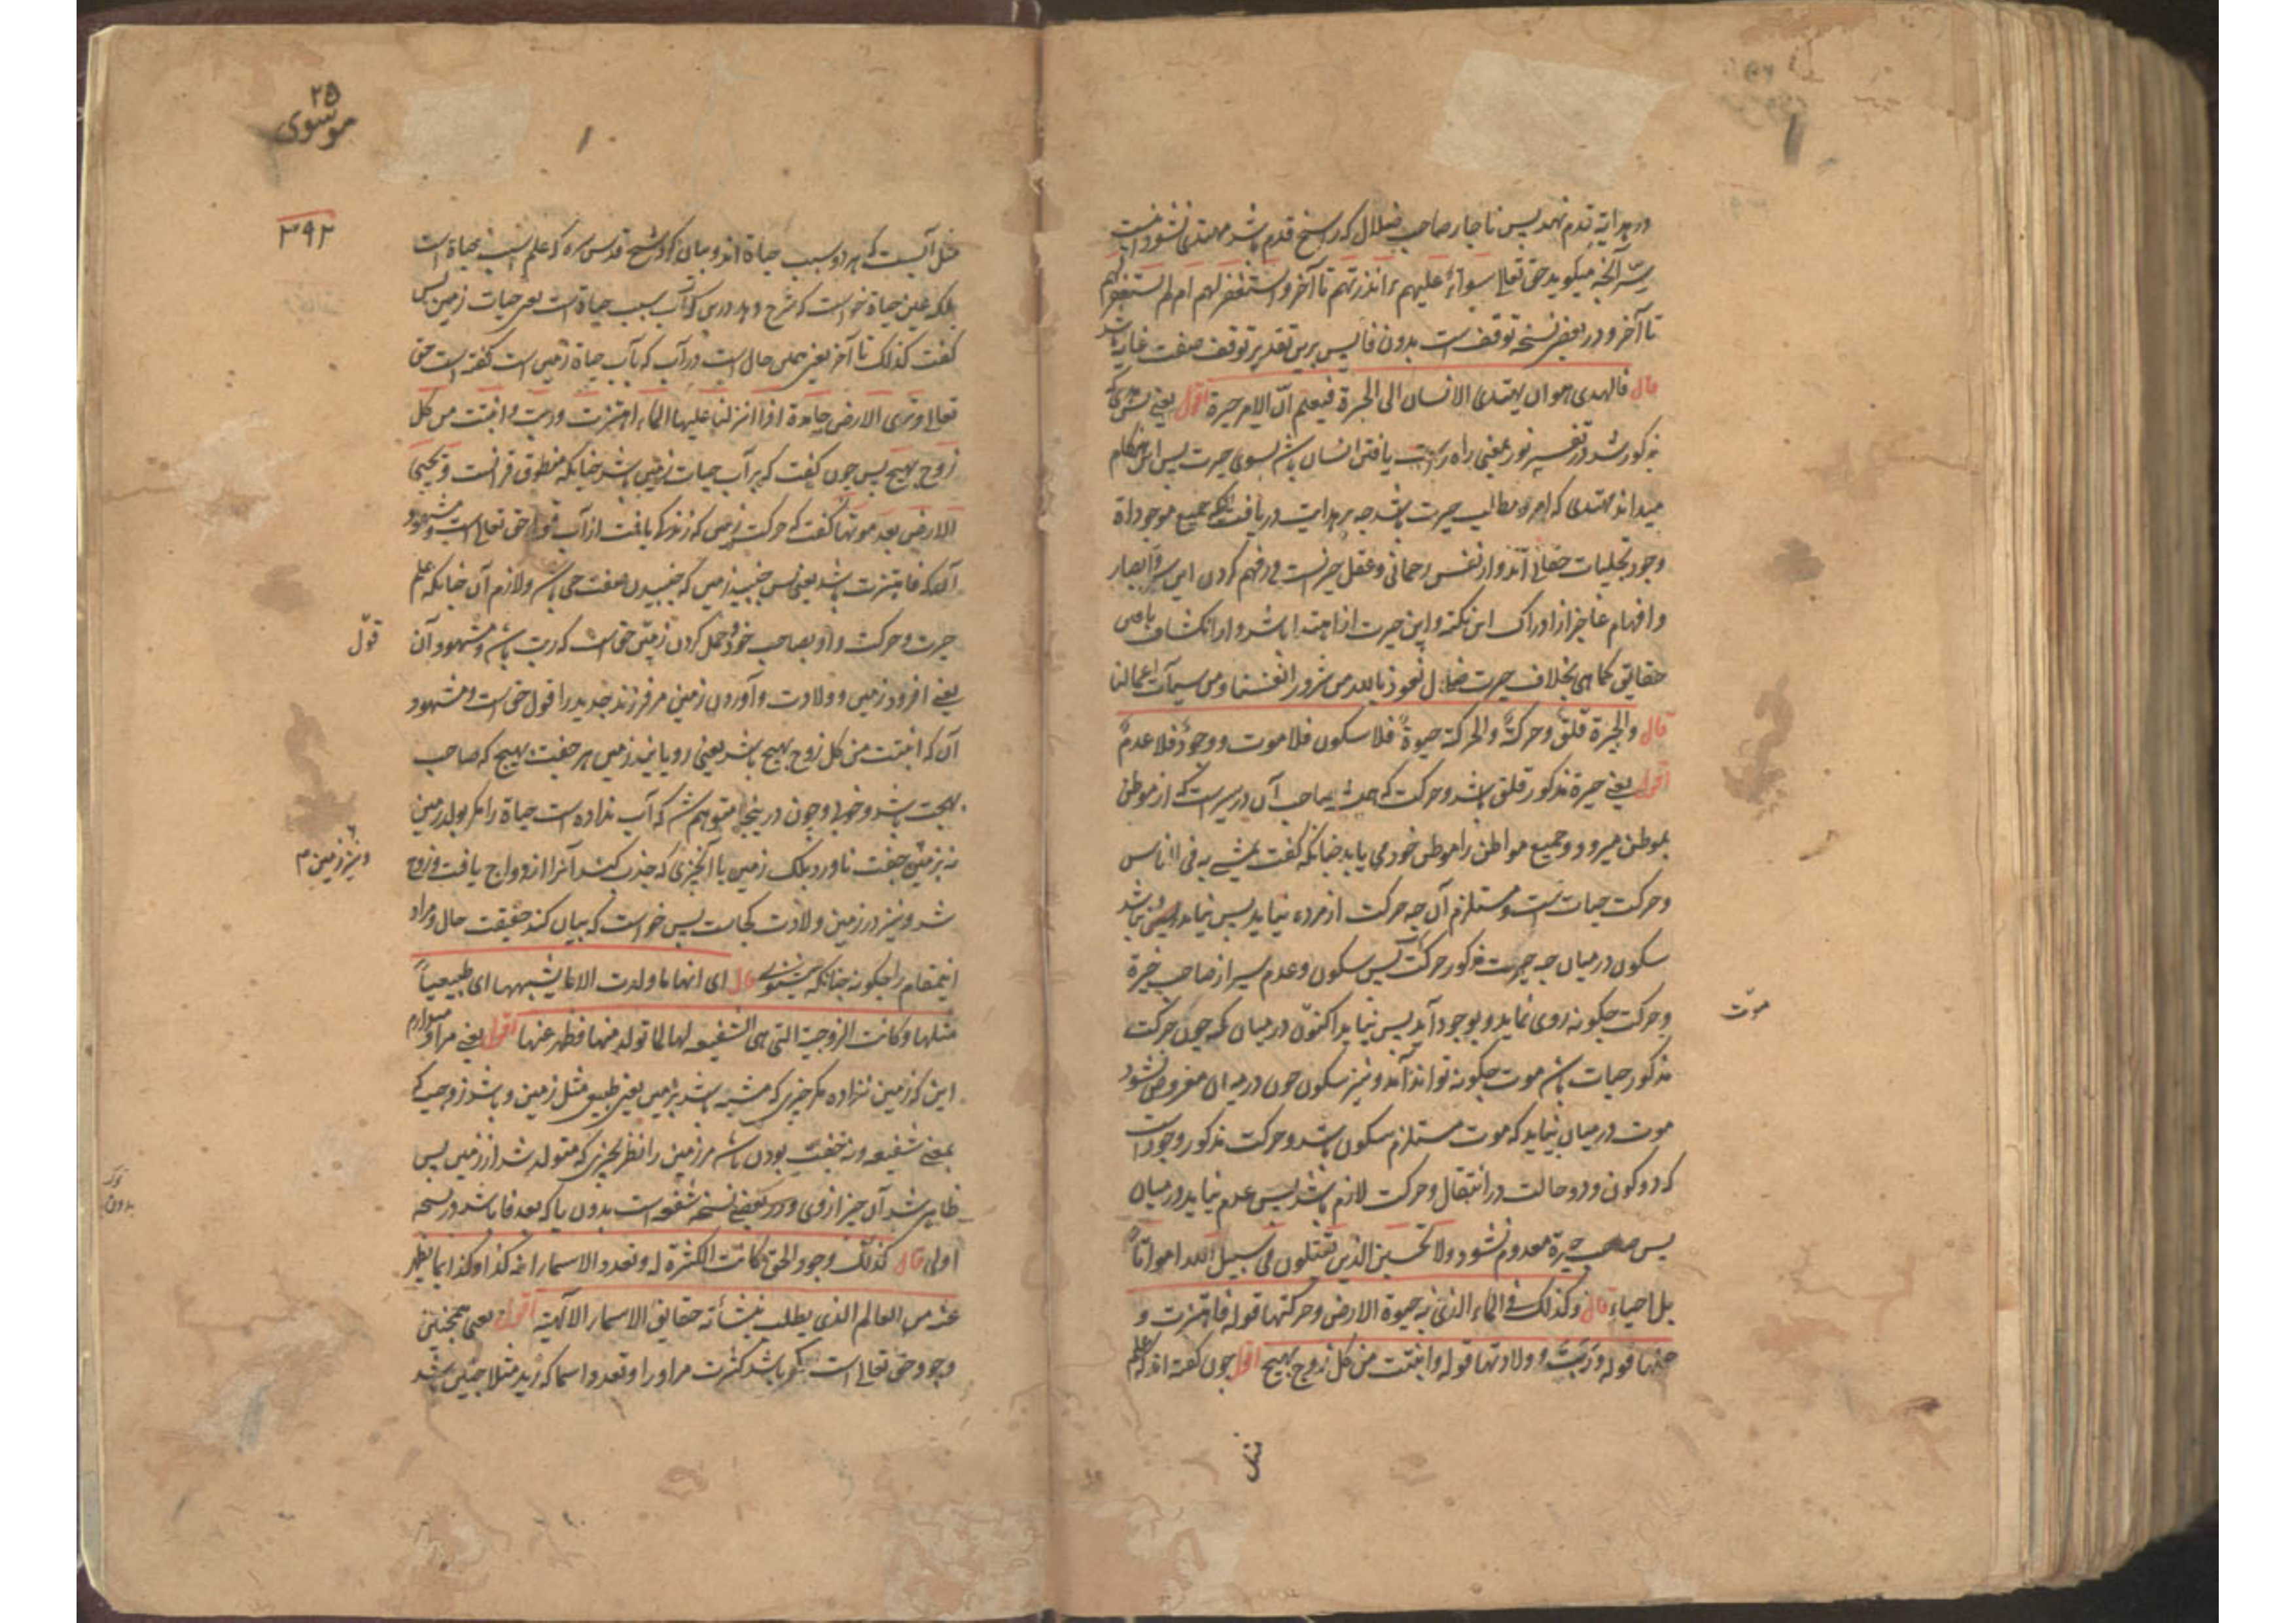 در هدایة قدم نهد پس ناچار صاحب ضلال که راسخ قدم باشد مهتدی نشود
میگوید حق تعالی سواء علیهم ءانذرتهم تا آخر و استغفر لهم ام لم تستغفر لهم
تا آخر و در بعض نسخه توقف است بدون فا پس برین تقدیر توقف صفت غایة باشد
قال فالهدی هو ان یهتدی الانسان الی الحیرة فیعلم انّ الامر حیرة اقول یعنی
مذکور شد در تفسیر نور یعنی راه راست یافتن انسان باشد بسوی حیرت پس این هنگام
میداند مهتدی که امر و مطالب حیرت باشد چه بر هدایت دریافت که جمیع موجوداة
وجود تجلیات حقانی اند و از نفس رحمانی و عقل حیرانست در فهم کردن این سر و ابصار
و افهام عاجز از ادراک این نکته و این حیرت از اهتدا باشد و از انکشاف
حقایق کماهی بخلاف حیرت ضلال نعوذ بالله من شرور انفسنا و من سیآت اعمالنا
قال والحیرة قلق وحرکة والحرکة حیوة فلا سکون فلا موت ووجود فلا عدم
اقول یعنی حیرة مذکور قلق باشد و حرکت که صاحب آن در سیر است که از موطن
بموطن میرود و جمیع مواطن را موطن خود می یابد چنانکه گفت یمشی به فی الناس
و حرکت حیات است و مستلزم آن چه حرکت از مرده نیاید پس نیاید و نباشد
سکون در میان چه حیرت مذکور حرکت است پس سکون و عدم سیر از صاحب حیرة
و حرکت چگونه روی نماید و بوجود آید پس نیاید اکنون در میان که چون حرکت
موت
مذکور حیات باشد موت چگونه تواند آمد و نیز سکون چون در میان مفروض نشود
موت در میان نیاید که موت مستلزم سکون باشد و حرکت مذکور وجود است
که دو کون و دو حالت در انتقال و حرکت لازم باشد پس عدم نیاید در میان
پس صاحب حیرة معدوم نشود ولا تحسبن الذین تقتلون فی سبیل الله امواتا
بل احیاء قال وکذلک فی الماء الذی به حیوة الارض وحرکتها قوله فاهتزت و
حملها قوله وربت وولادتها قوله وانبتت من کل زوج بهیج اقول چون گفته اند که علم
۲۵
موسوی
۳۹۲
مثل آبست که هر دو سبب حیاة اند و بیان کرد شیخ قدس سره که علم سبب حیاة است
بلکه عین حیاة خواست که شرح دهد درین که آب سبب حیاة است یعنی حیات زمین پس
گفت کذلک تا آخر یعنی همین حال است در آب که بآب حیاة زمین است گفته است حق
تعالی وتری الارض هامدة اذا انزلنا علیها الماء اهتزت وربت وانبتت من کل
زوج بهیج پس چون گفت که بر آب حیات زمین باشد چنانکه منطوق قرانست ویحیی
الارض بعد موتها گفت که حرکت زمین که زندگی یافت از آب قول حق تعالی است و مشهود
آنکه فاهتزت باشد یعنی پس جنبید زمین که جنبیدن صفت حی باشد و لازم آن چنانکه علم
حیرت و حرکت و او بصاحب خود و حمل کردن زمین حق است که ربت باشد و مشهود آن
قول
یعنی افزود زمین و ولادت و آوردن زمین مر فرزند جدید را قول حق است و مشهود
آن که انبتت من کل زوج بهیج باشد یعنی رویانید زمین هر جفت بهیج که صاحب
بهجت باشد و خوبی و چون در ینجا متوهم شد که آب نداده است حیاة را مگر بولد زمین
نه بزمین جفت ناورد بلک زمین با آنچیزی که جذب کند آنرا ازدواج یافت و زوج
و نیز زمین م
شد و نیز در زمین ولادت کجاست پس خواست که بیان کند حقیقت حال و مراد
اینمقام را چگونه چنانکه میشنوی قال ای انها ما ولدت الا ما یشبهها ای طبیعیاً
مثلها وکانت الزوجیة التی هی الشفعیه لها لما تولد منها فظهر عنها اقول یعنی مراد میدارم
این که زمین نزاده مگر چیزی که مشبه باشد بزمین یعنی طبیعی مثل زمین و باشد زوجیت که
بمعنی شفعیه و نه جفت بودن باشد مر زمین را نظر بچیزی که متولد شد از زمین پس
ظاهر شد آن چیز از وی و در بعضی نسخه شفعه است بدون یا که بعد فا باشد در نسخه
اولی قال کذلک وجود الحق کانت الکثرة له وتعدد الاسماء انه کذا وکذا بما یظهر
عنه من العالم الذی یطلب بنشأته حقایق الاسماء الالهیة اقول یعنی همچنین
وجود حق تعالی است که باشد کثرت مر او را و تعدد اسما که زید مثلا چنین باشد